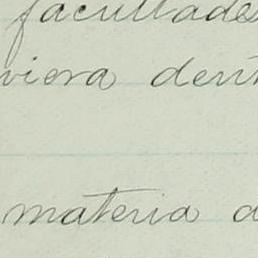 facultades
viera dent
materia d